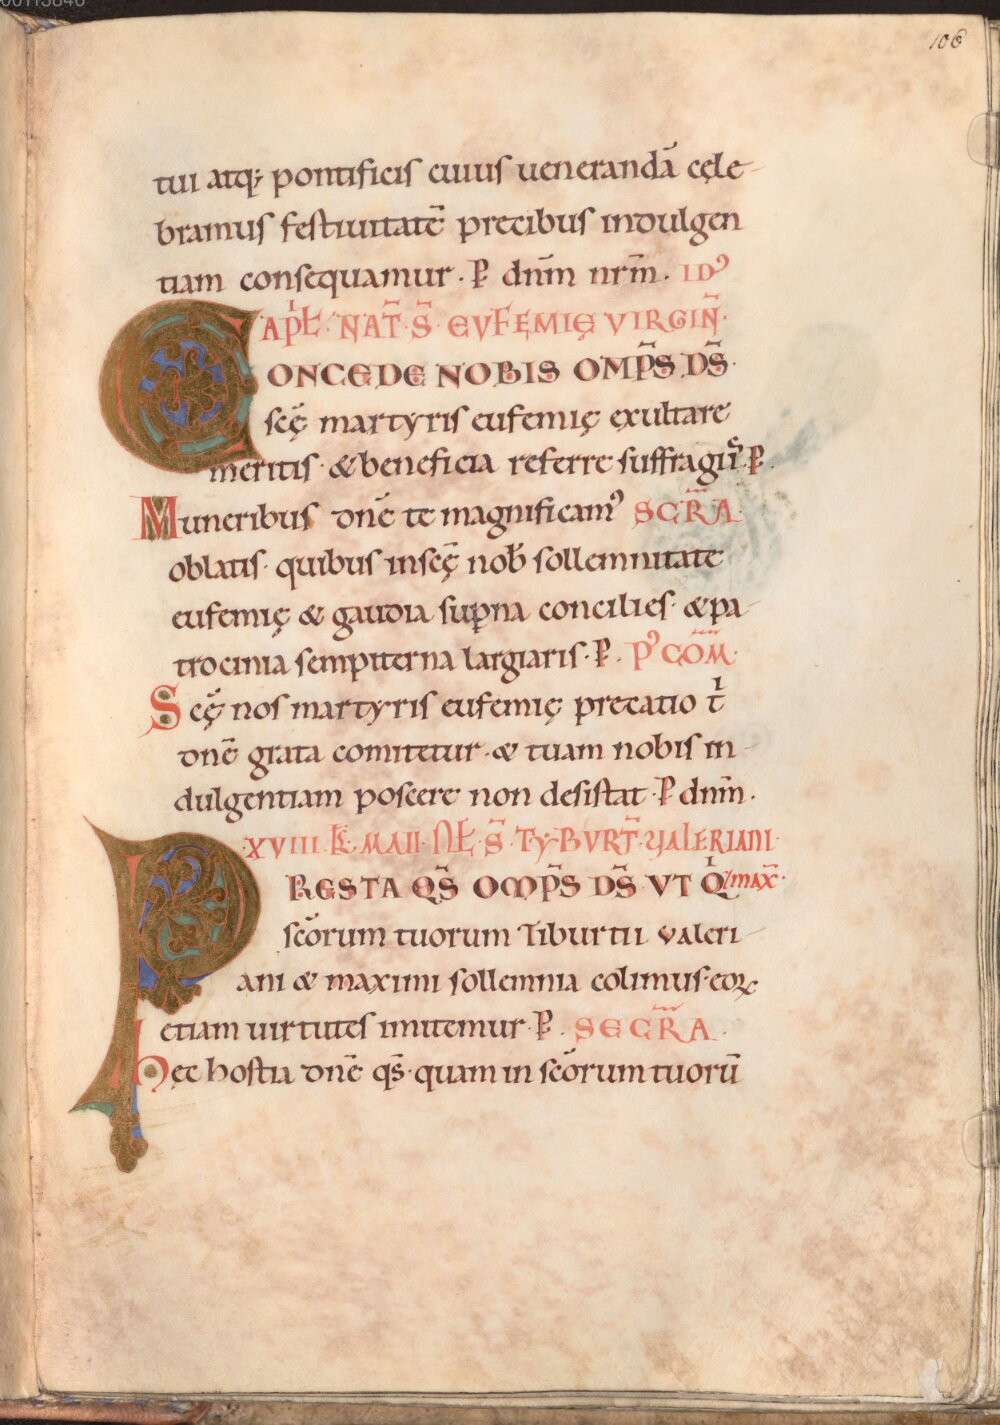 106
tui atq; pontificis cuius uenerandā cęle
bramus festiuitatē precibus indulgen
tiam consequamur. P̄ dnm̄ nrm̄. IDꝰ
APL̄. NAT̄. S̄. EVFEMIĘ VIRGIN̄.
CONCEDE NOBIS OMP̄S DS̄.
scę̄ martyris eufemię exultare
meritis. & beneficia referre suffragiū. P̄.
Muneribus dnē te magnificamꝰ SECR̄A.
oblatis. quibus in scę̄ nob̄ sollemnitate
eufemię & gaudia sup̄na concilies. & pa
trocinia sempiterna largiaris. P̄. Pꝰ COM̄.
Scę̄ nos martyris eufemię precatio t̄
dnē grata comitetur. & tuam nobis in
dulgentiam poscere non desistat. P̄ dnm̄.
XVIII. KL̄. MAII. NL̄. S̄. TYBVRT̄. VALERIANI.
PRESTA QS̄ OMP̄S DS̄. VT Q̇ 7 MAX̄.
scōrum tuorum Tiburtii valeri
ani & maximi sollemnia colimus. eoꝝ
etiam uirtutes imitemur. P̄. SECR̄A.
Hęc hostia dnē qs̄. quam in scōrum tuorū